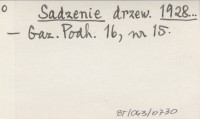 o
Sadzenie drzew. 1928...
— Gaz. Podh. 16, nr 15.
BT/063/0730